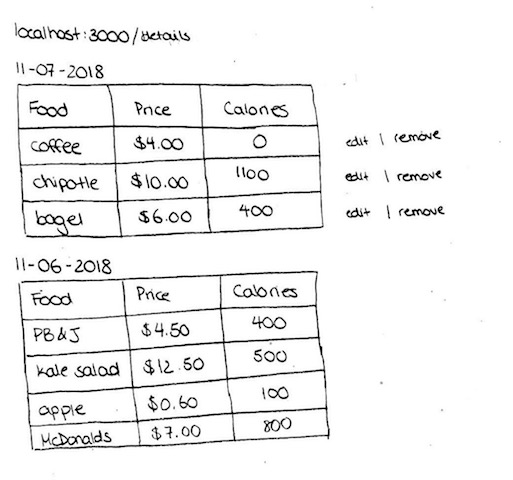 localhost:3000/details
11-07-2018
Food Price Calories
coffee $4.00 0 edit | remove
chipotle $10.00 1100 edit | remove
bagel $6.00 400 edit | remove
11-06-2018
Food Price Calories
PB&J $4.50 400
kale salad $12.50 500
apple $0.60 100
McDonalds $7.00 800